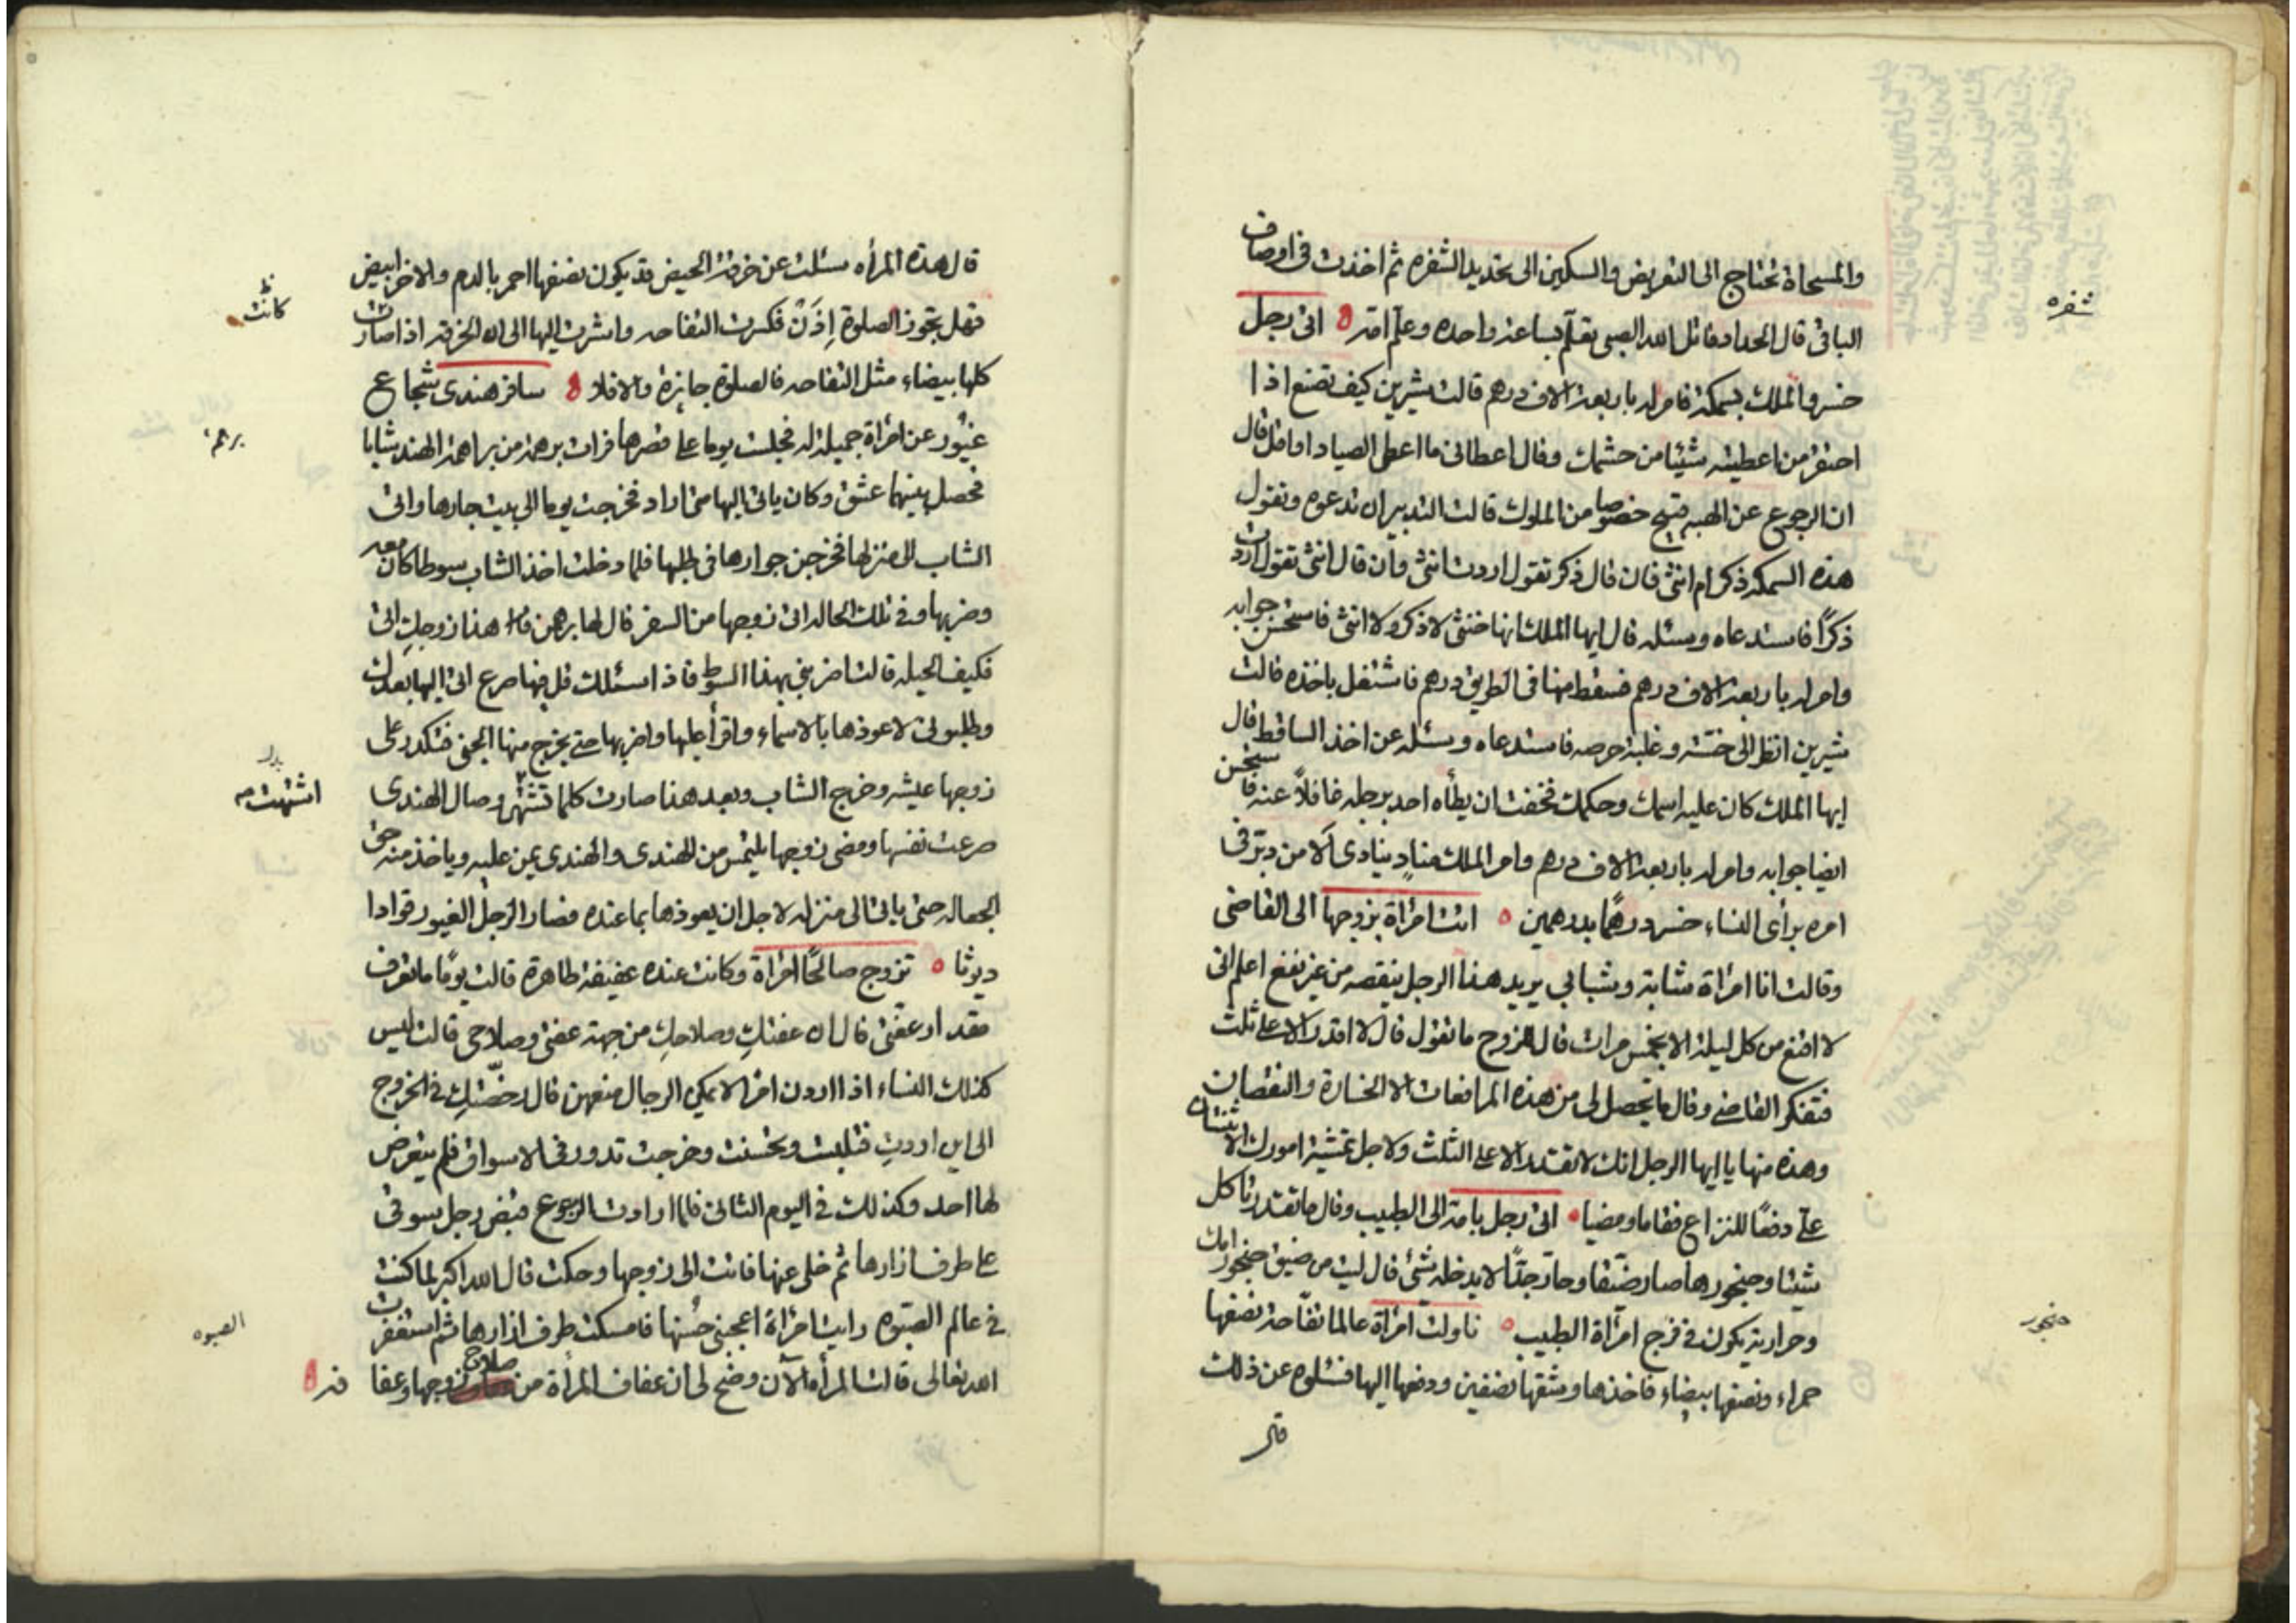 والمسحاة تحتاج الى التعريض والسكين الى تحديد الشفره ثم اخذت فى اوصاف
الباقى قال الحداد قاتل الله الصبى تعلم بساعة واحده وعلم امه اتى رجل
خسرو الملك بسمكة فامر له باربعة الاف درهم قالت شيرين كيف تصنع اذا
احتقر من اعطيته شيئا من حشمك وقال اعطانى ما اعطى الصياد او اقل قال
ان الرجوع عن الهبه قبيح خصوصا من الملوك قالت التدبير ان تدعوه وتقول
هذه السمكه ذكر ام انثى فان قال ذكر تقول اردت انثى وان قال انثى تقول اردت
ذكرًا فاستدعاه وسئله قال ايها الملك انها خنثى لا ذكر ولا انثى فاستحسن جوابه
وامر له باربعة الاف درهم فسقط منها فى الطريق درهم فاشتغل باخذه قالت
شيرين انظر الى خسته وغلبة حرصه فاستدعاه وسئله عن اخذ الساقط قال
ايها الملك كان عليه اسمك وحكمك فخفت ان يطأه احد برجله غافلاً عنه فاستحسن
ايضا جوابه وامر له باربعة الاف درهم وامر الملك مناد ينادى ألا من دبّر فى
امره برأى النساء خسر درهمًا بدرهمين اتت امرأة بزوجها الى القاضى
وقالت انا امرأة شابة وشبابى يريد هذا الرجل ينقصه من غير نفع اعلم انى
لا اقنع من كل ليلة الا بخمس مرات قال للزوج ما تقول قال لا اقدر الا على ثلث
فتفكر القاضى وقال ما يحصل لى من هذه المرافعات الا الخسارة والنقصان
وهذه منها يا ايها الرجل انك لا تقتدر الا على الثلث ولاجل تمشية امورك الاثنتان
علىّ دفعًا للنزاع فقاما ومضيا اتى رجل بامه الى الطبيب وقال ما تقتدر تاكل
شيئا وحنجورها صار ضيّقا وحارّ جدًّا لا يدخله شئ قال ليت من ضيق حنجور امك
وحرارته يكون فى فرج امرأة الطبيب ناولت امرأة عالما تفّاحة نصفها
حمراء ونصفها بيضاء فاخذها وشقها نصفين ودفعها اليها فسئلوه عن ذلك
قال
شفره
حنجور
قال هذه المرأه سئلت عن خرقة الحيض قد يكون نصفها احمر بالدم والاخر ابيض
فهل تجوز الصلوة إذَنْ فكسرت التفاحه واشرت اليها الى ان الخرقه اذا صارت
كلها بيضاء مثل التفاحه فالصلوة جايزة والا فلا سافر هندى شجاع
غيور عن امرأة جميلة له فجلست يوما على قصرها فرات برهمن من براهمة الهند شابا
فحصل بينهما عشق وكان ياتى اليها متى اراد فخرجت يوما الى بيت جارها واتى
الشاب الى منزلها فخرجن جوارها فى طلبها فلما دخلت اخذ الشاب سوطا كان معه
وضربها وفى تلك الحاله اتى زوجها من السفر قال لها برهمن هذا زوجكِ اتى
فكيف الحيله قالت اضربنى بهذا السوط فاذا سئلك قل فيها صرع اتى اليها بعدك
وطلبونى لاعوذها بالاسماء واقرأ عليها واضربها حتى يخرج منها الجنى فتكدر على
زوجها عيشه وخرج الشاب وبعد هذا صارت كلما تشتهى وصال الهندى
صرعت نفسها ومضى زوجها يلتمس من الهندى والهندى يمن عليه وياخذ منه حق
الجعاله حتى ياتى الى منزله لاجل ان يعوذها بما عنده فصار الرجل الغيور قوادا
ديوثا تزوج صالحًا امرأة وكانت عنده عفيفة طاهرة قالت يومًا ما تعرف
مقدار عفتى قال ان عفتكِ وصلاحكِ من جهة عفتى وصلاحى قالت ليس
كذلك النساء اذا اردن امرا لا يمكن الرجال منعهن قال رخّصتكِ فى الخروج
الى اين اردتِ فتلبست وتحسنت وخرجت تدور فى الاسواق فلم يتعرض
لها احد وكذلك فى اليوم الثانى فلما ارادت الرجوع قبض رجل سوقى
على طرف ازارها ثم خلى عنها فاتت الى زوجها وحكت قال الله اكبر لما كنت
فى عالم الصبوه رايت امرأة اعجبنى حُسنها فامسكت طرف ازارها ثم استغفرت
الله تعالى قالت المرأه الآن وضح لى ان عفاف المرأة من صلاح زوجها وعفا فه
كانت
برهم
اشتهت
الصبوه